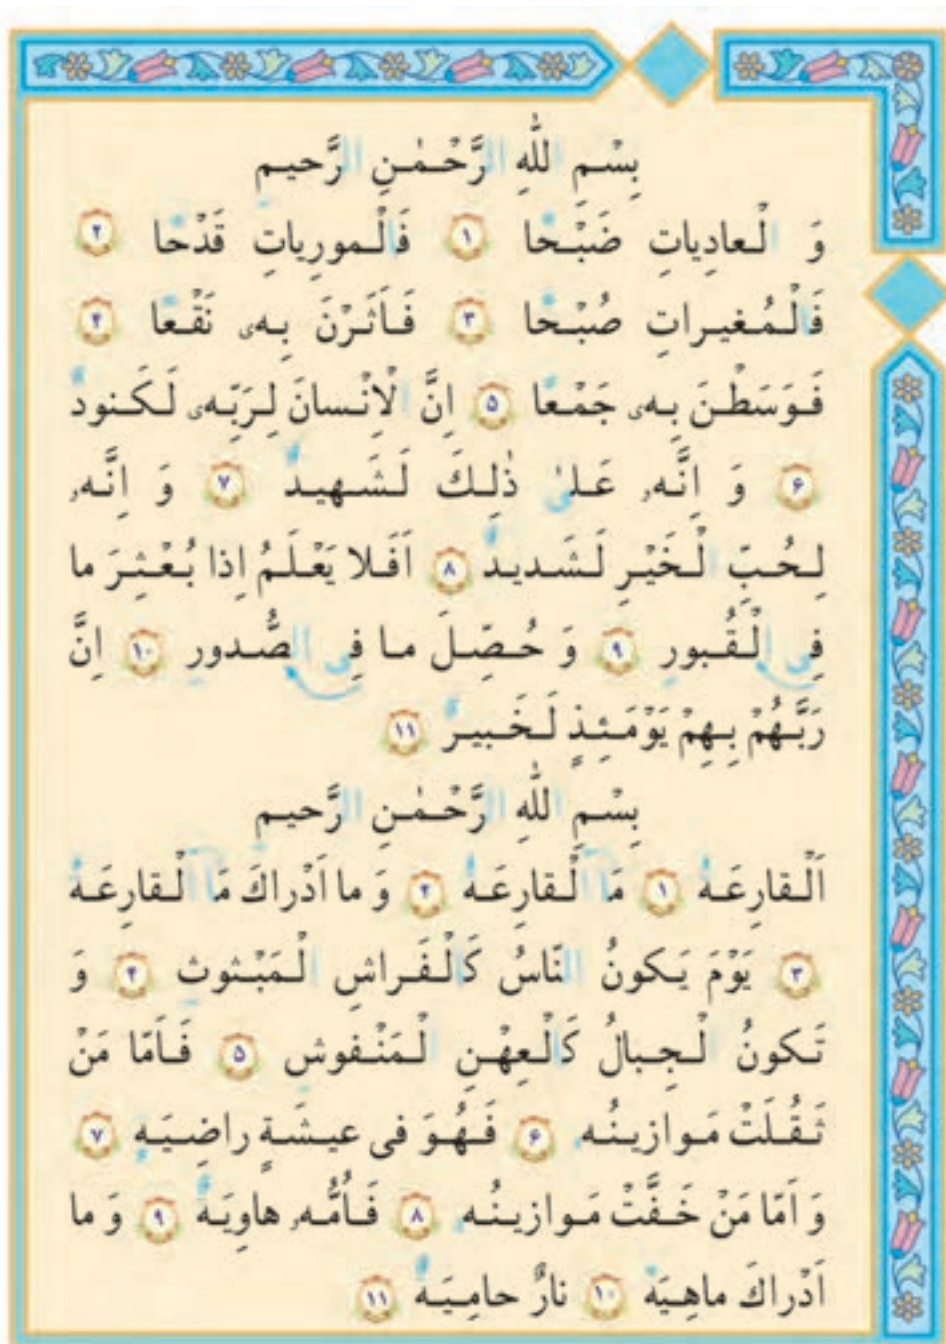 بِسْمِ اللّٰهِ الرَّحْمٰنِ الرَّحیمِ
وَ الْعادِیاتِ ضَبْحًا ١ فَالْمورِیاتِ قَدْحًا ٢
فَالْمُغیراتِ صُبْحًا ٣ فَاَثَرْنَ بِهٖ نَقْعًا ۴
فَوَسَطْنَ بِهٖ جَمْعًا ۵ اِنَّ الْاِنْسانَ لِرَبِّهٖ لَکَنودٌ
۶ وَ اِنَّهٗ عَلیٰ ذٰلِکَ لَشَهیدٌ ٧ وَ اِنَّهٗ
لِحُبِّ الْخَیْرِ لَشَدیدٌ ٨ اَفَلا یَعْلَمُ اِذا بُعْثِرَ ما
فِی الْقُبورِ ٩ وَ حُصِّلَ ما فِی الصُّدورِ ١٠ اِنَّ
رَبَّهُمْ بِهِمْ یَوْمَئِذٍ لَخَبیرٌ ١١
بِسْمِ اللّٰهِ الرَّحْمٰنِ الرَّحیمِ
اَلْقارِعَةُ ١ مَا الْقارِعَةُ ٢ وَ ما اَدْراکَ مَا الْقارِعَةُ
٣ یَوْمَ یَکونُ النّاسُ کَالْفَراشِ الْمَبْثوثِ ۴ وَ
تَکونُ الْجِبالُ کَالْعِهْنِ الْمَنْفوشِ ۵ فَاَمّا مَنْ
ثَقُلَتْ مَوازینُهٗ ۶ فَهُوَ فی عیشَةٍ راضِیَةٍ ٧
وَ اَمّا مَنْ خَفَّتْ مَوازینُهٗ ٨ فَاُمُّهٗ هاوِیَةٌ ٩ وَ ما
اَدْراکَ ماهِیَهْ ١٠ نارٌ حامِیَةٌ ١١